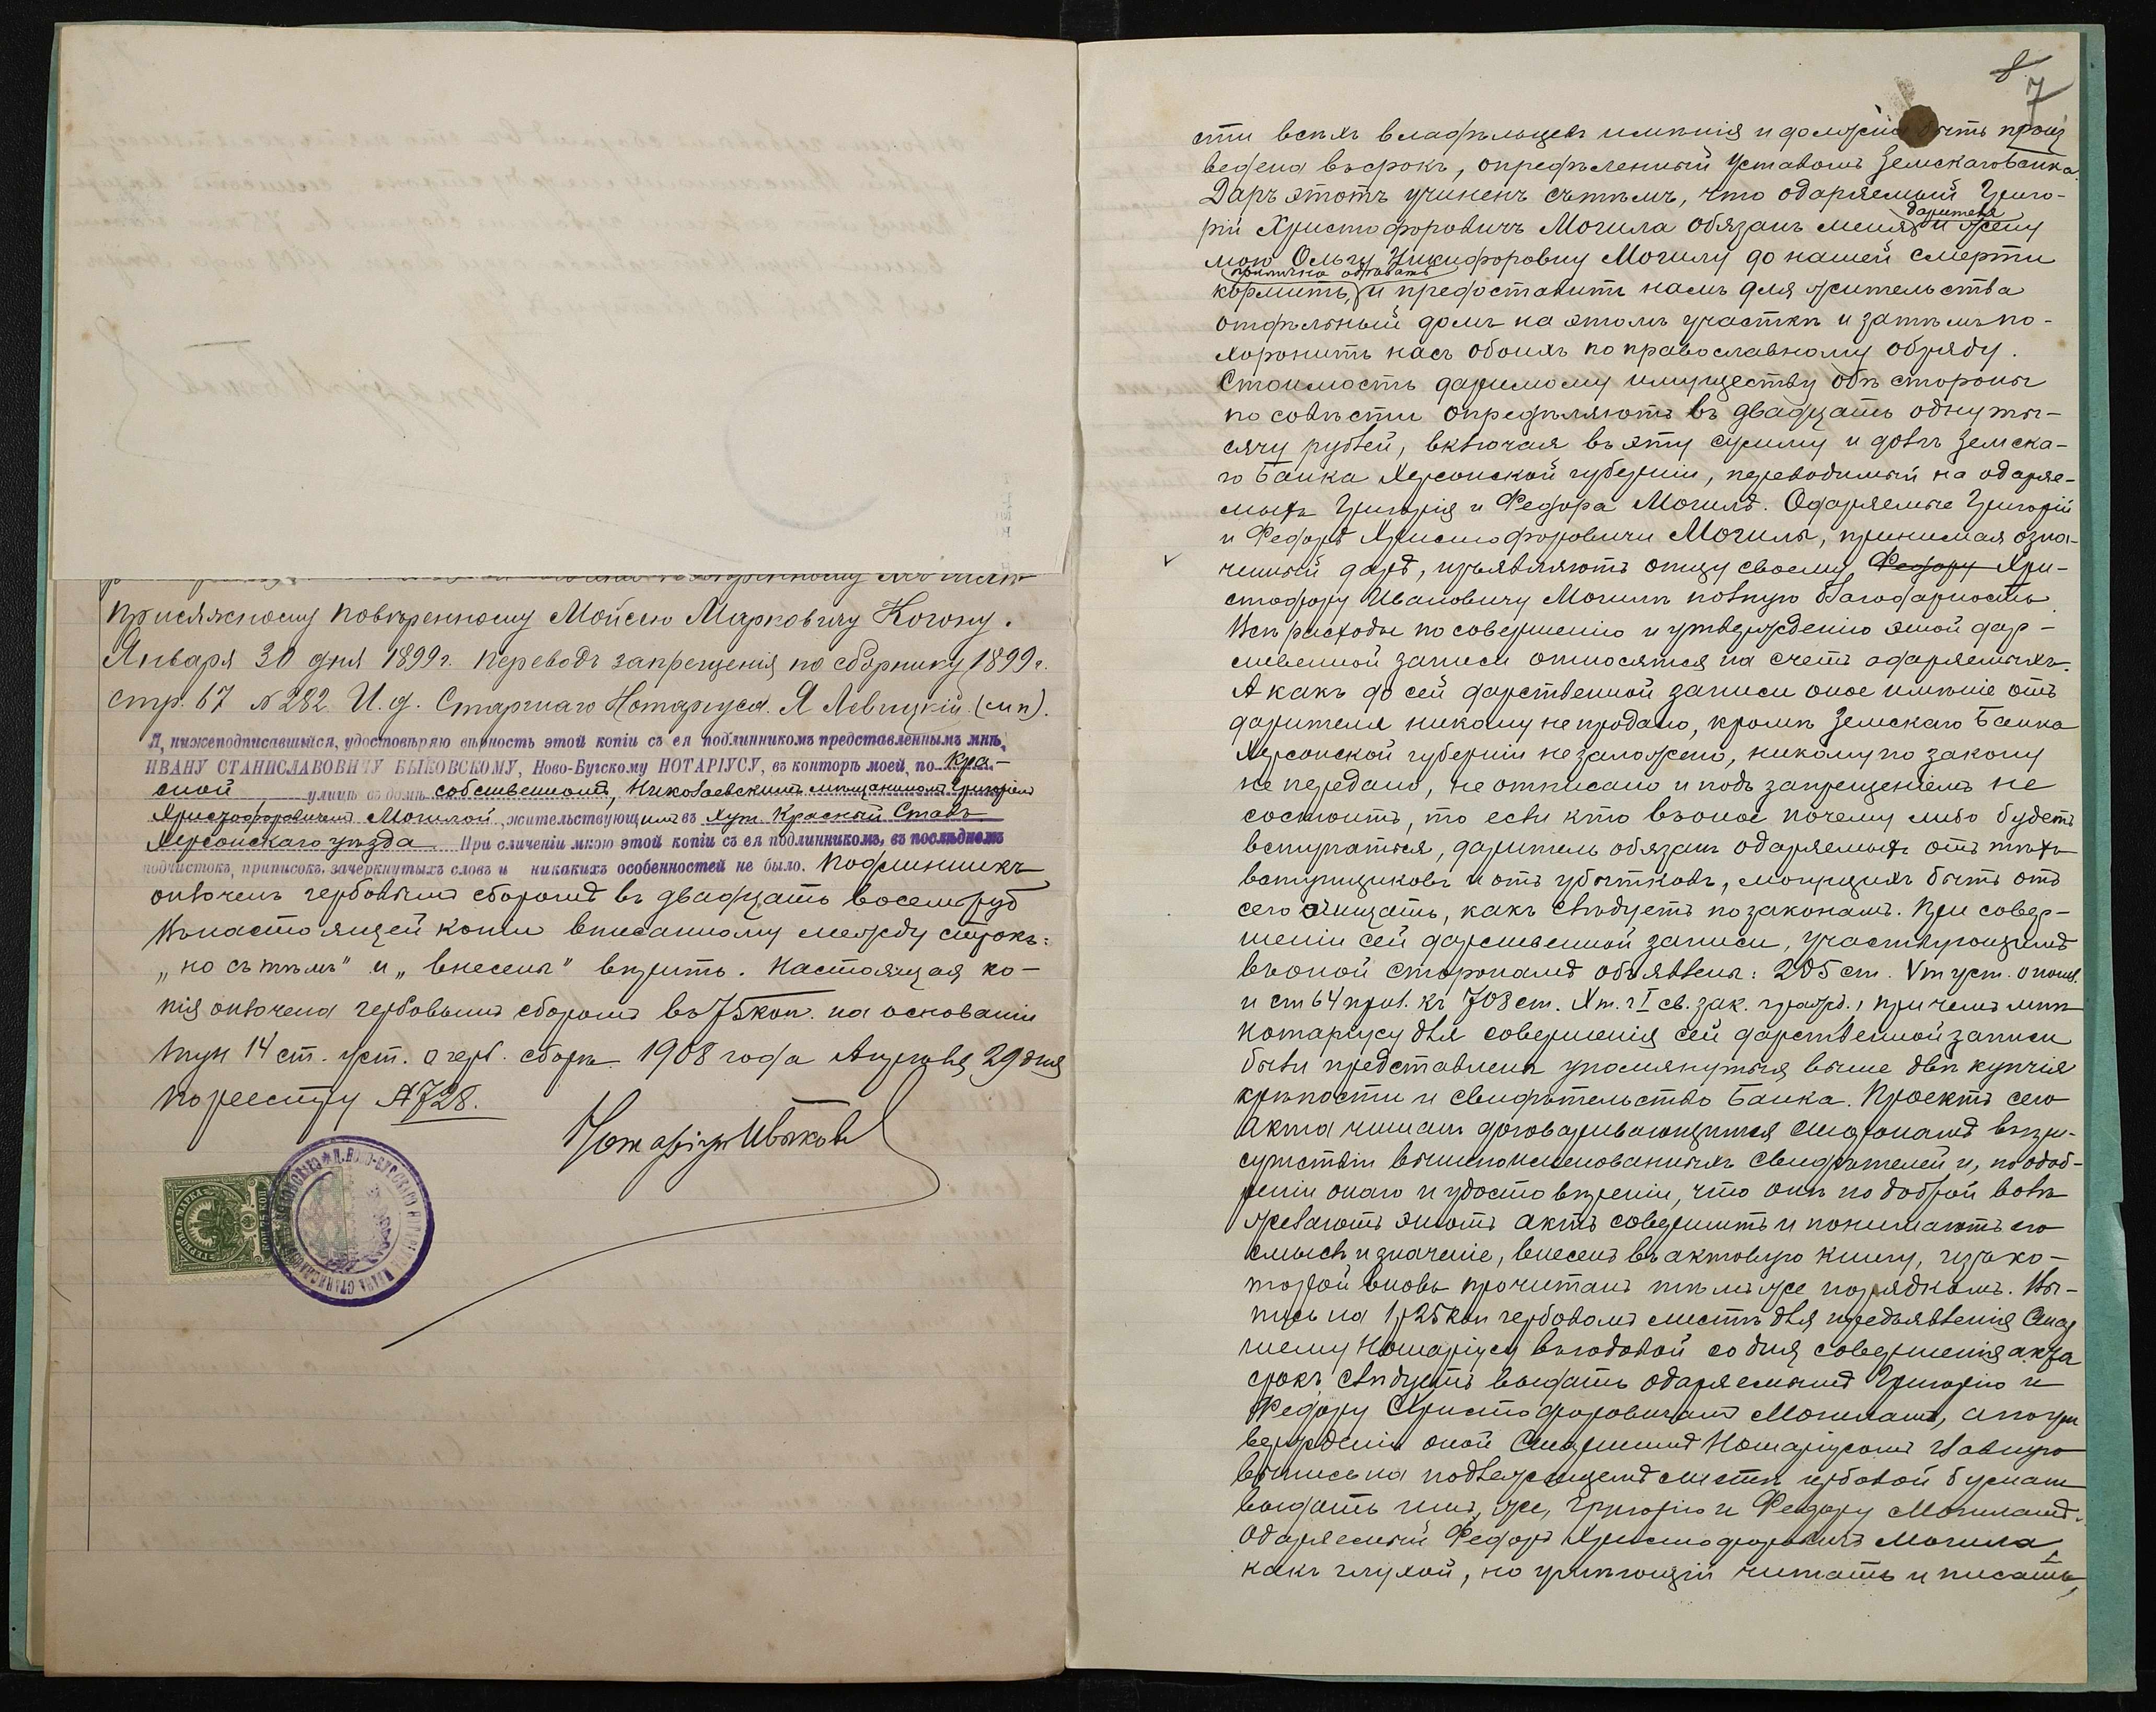 присяжному повѣренному Мойсею Марковичу Когону.
Января 30 дня 1899 г. переводъ запрещенія по сборнику 1899 г.
стр. 67 № 282 И. д. Старшаго Нотаріуса Я Левицкій (м п).
Я, нижеподписавшійся, удостовѣряю вѣрность этой копіи съ ея подлинникомъ представленнымъ мнѣ,
ИВАНУ СТАНИСЛАВОВИЧУ БЫКОВСКОМУ, Ново-Бугскому НОТАРІУСУ, въ конторѣ моей, по Кра-
сной улицѣ въ домѣ собственномъ, Николаевскимъ мѣщаниномъ Григоріемъ
Христофоровичемъ Могилой, жительствующимъ въ хут. Красный Ставъ
Херсонскаго уѣзда При сличеніи мною этой копіи съ ея подлинникомъ, въ послѣднемъ
подчистокъ, приписокъ, зачеркнутыхъ словъ и никакихъ особенностей не было. Подлинникъ
оплоченъ гербовымъ сборомъ въ двадцать восемь руб
Въ настоящей копіи вписанному между строкъ:
„но съ тѣмъ" и „внесены" вѣрить. Настоящая ко-
пія оплочена гербовымъ сборомъ въ 75 коп. на основаніи
14 ст. уст. о герб. сборѣ 1908 года Апрѣля 29 дня
По реестру № 728.
Нотаріусъ Быковскій
ГЕРБОВАЯ МАРКА
8
7
сти всѣхъ владѣльцевъ имѣнія и должно быть произ
ведена въ срокъ, опредѣленный Уставомъ Земскаго Банка.
Даръ этотъ учиненъ съ тѣмъ, что одаряемый Григо-
рій Христофоровичъ Могила обязанъ меня дарителя и жену
мою Ольгу Никифоровну Могилу до нашей смерти
кормить, прилично одѣвать и предоставить намъ для жительства
отдѣльный домъ на этомъ участкѣ и затѣмъ по-
хоронить насъ обоихъ по православному обряду.
Стоимость даримому имуществу обѣ стороны
по совѣсти опредѣляютъ въ двадцать одну ты-
сячу рублей, включая въ эту сумму и долгъ Земска-
го Банка Херсонской губерніи, переводимый на одаряе-
мыхъ Григорія и Федора Могилъ. Одаряемые Григорій
и Федоръ Христофоровичи Могилы, принимая озна-
ченный даръ, изъявляютъ отцу своему Федору Хри-
стофору Ивановичу Могилѣ полную благодарность.
Всѣ расходы по совершенію и утвержденію этой дар-
ственной записи относятся на счетъ одаряемыхъ.
А какъ до сей дарственной записи оное имѣніе отъ
дарителя никому не продано, кромѣ Земскаго Банка
Херсонской губерніи не заложено, никому по закону
не передано, не отписано и подъ запрещеніемъ не
состоитъ, то если кто въ оное почему либо будетъ
вступаться, даритель обязанъ одаряемыхъ отъ тѣхъ
вступщиковъ и отъ убытковъ, могущихъ быть отъ
сего очищать, какъ слѣдуетъ по законамъ. При совер-
шеніи сей дарственной записи, участвующимъ
въ оной сторонамъ объявлены: 205 ст. V т уст. о пошл.
и ст 64 прил. къ 708 ст. X т. ч I св. зак. гражд., при чемъ мнѣ
Нотаріусу для совершенія сей дарственной записи
были представлены упомянутыя выше двѣ купчія
крѣпости и свидѣтельство Банка. Проектъ сего
акта читанъ договаривающимся сторонамъ въ при-
сутствіи вышепоименованныхъ свидѣтелей и, по одоб-
реніи онаго и удостовѣреніи, что они по доброй волѣ
желаютъ этотъ актъ совершить и понимаютъ его
смыслъ и значеніе, внесенъ въ актовую книгу, изъ ко-
торой вновь прочитанъ тѣмъ же порядкомъ. Вы-
пись на 1 р 25 коп гербовомъ листѣ для предъявленія Стар
шему Нотаріусу въ годовой со дня совершенія акта
срокъ слѣдуетъ выдать одаряемымъ Григорію и
Федору Христофоровичамъ Могиламъ, а по ут
вержденіи оной Старшимъ Нотаріусомъ главную
выпись на подлежащемъ листѣ гербовой бумаги
выдать имъ же, Григорію и Федору Могиламъ.
Одаряемый Федоръ Христофоровичъ Могила,
какъ глухой, но умѣющій читать и писать,